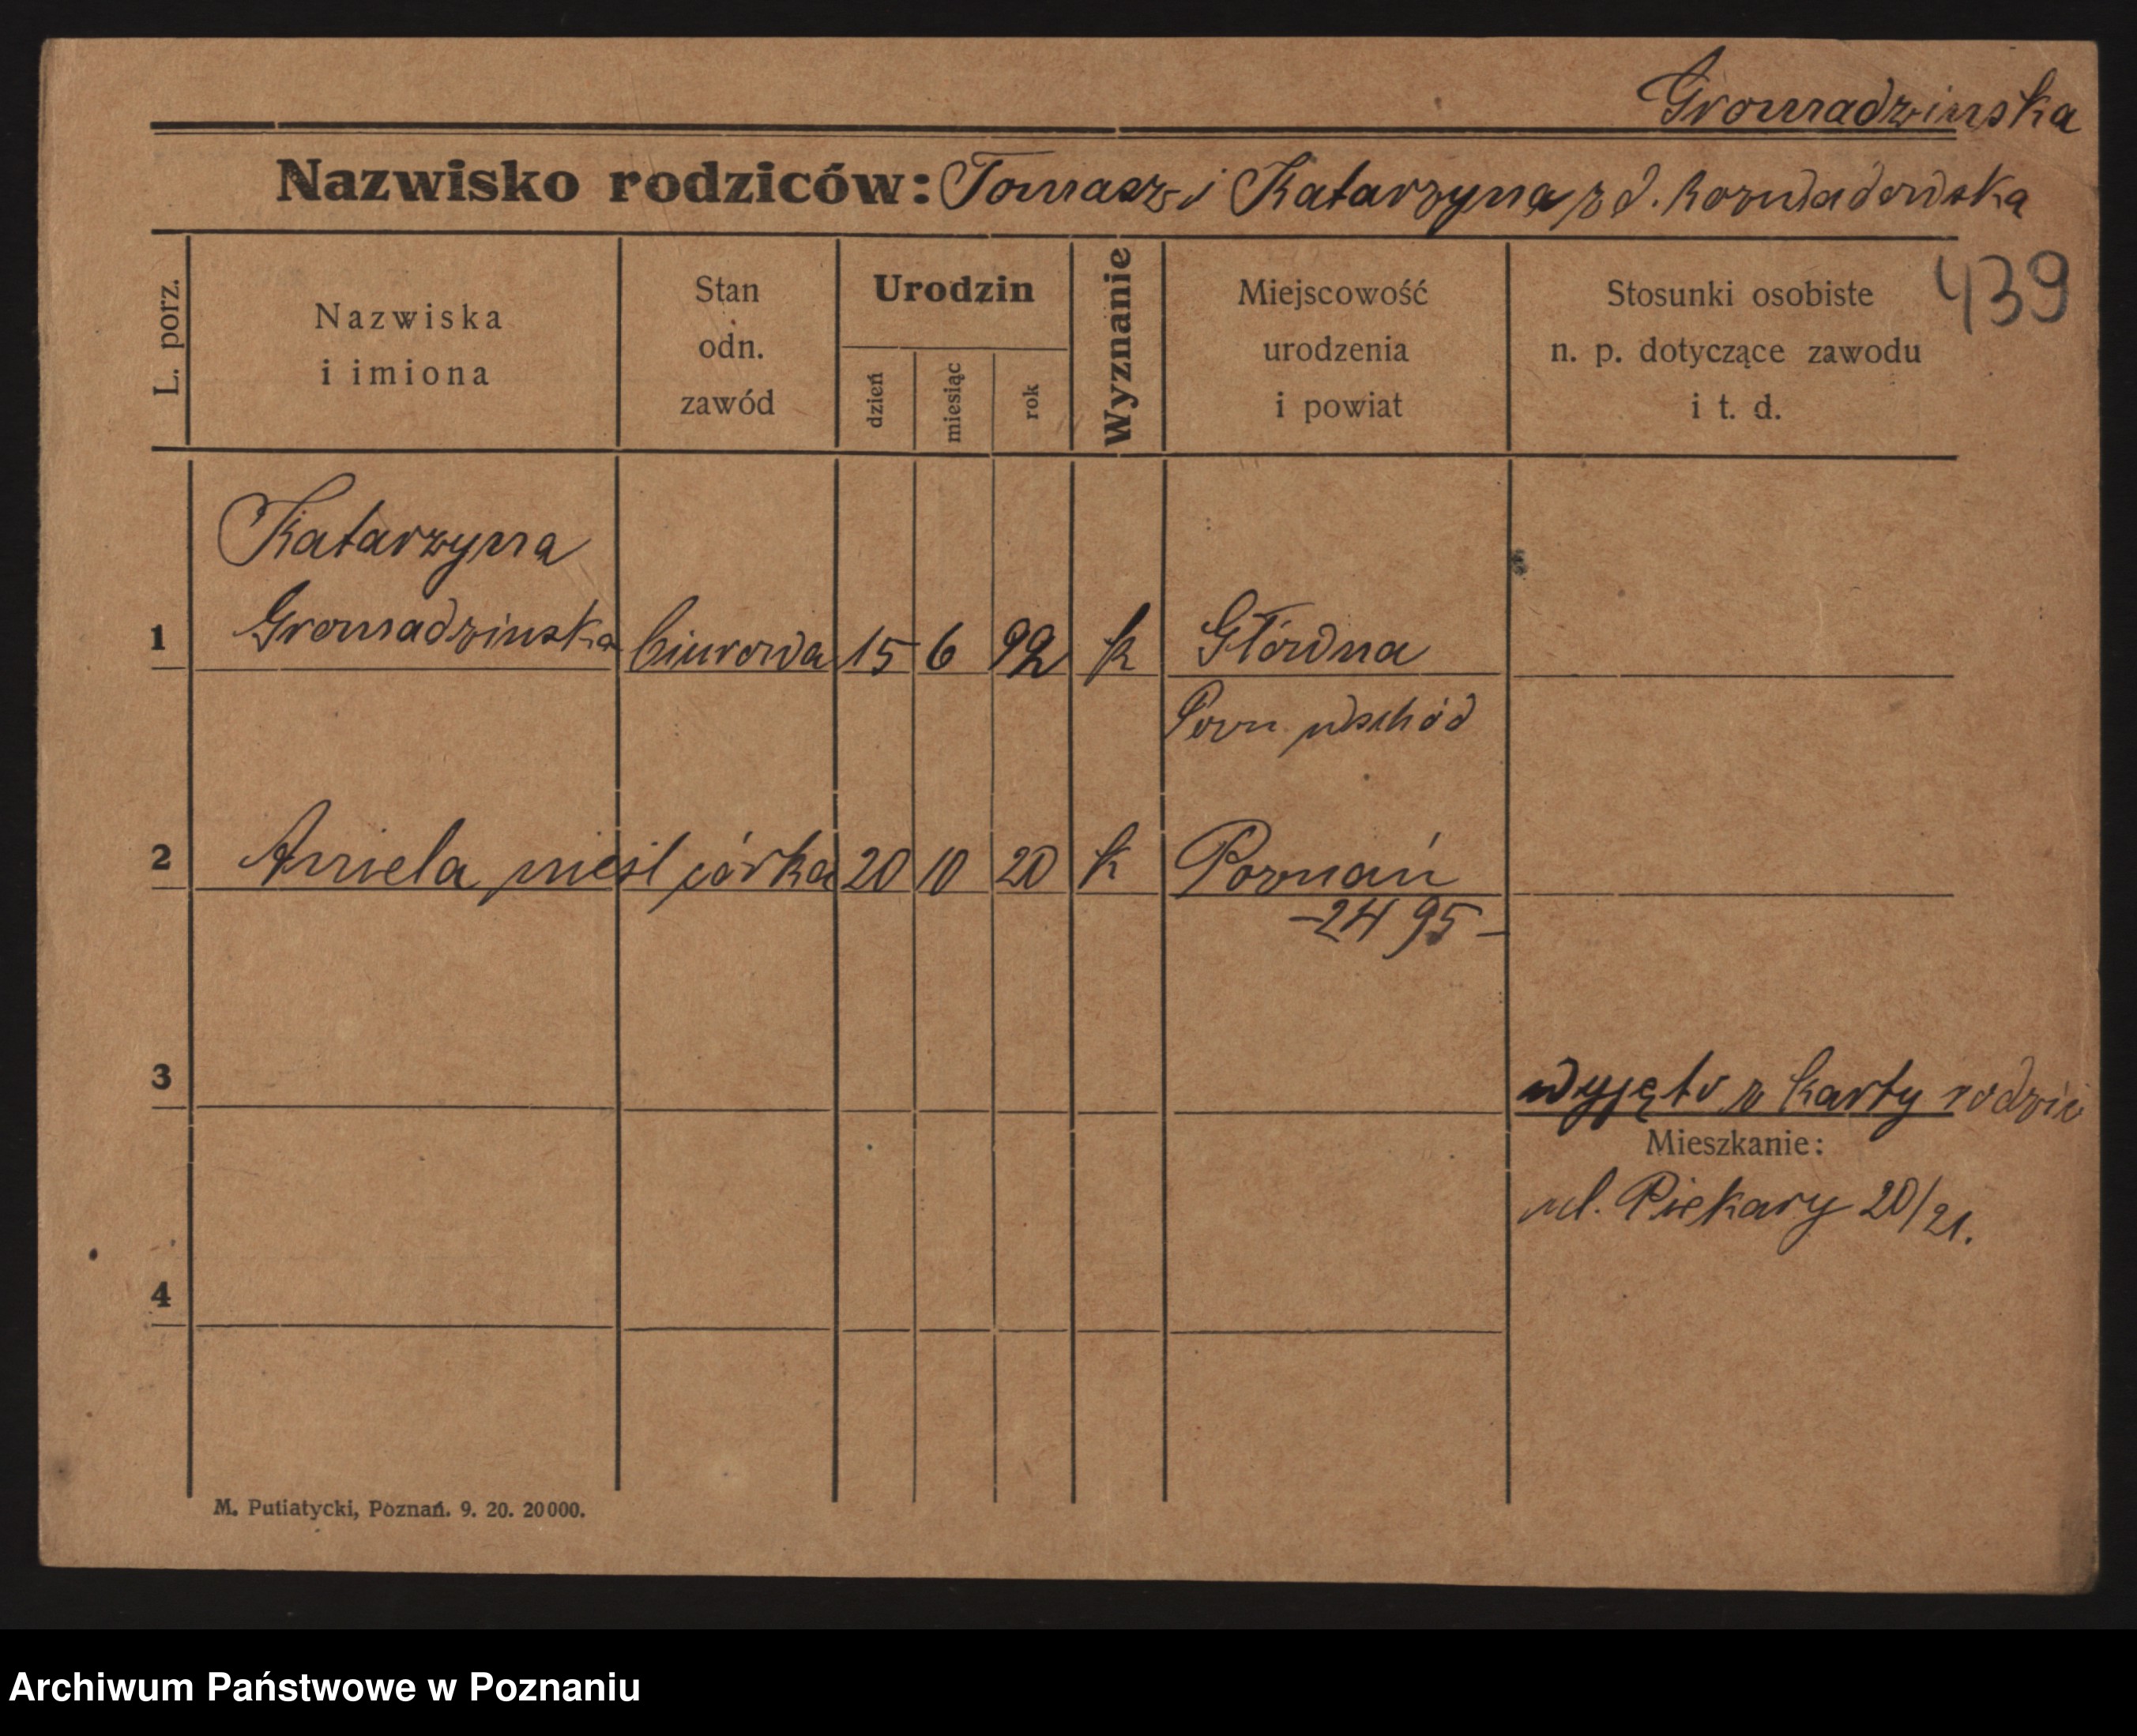 Gromadzinska
Nazwisko rodziców: Tomasz i Katarzyna z d. Rozwadowska
439
L. porz.
Nazwiska
i imiona
Stan
odn.
zawód
Urodzin
dzień
miesiąc
rok
Wyznanie
Miejscowość
urodzenia
i powiat
Stosunki osobiste
n. p. dotyczące zawodu
i t. d.
Katarzyna
1 Gromadzinska biurowa 15 6 92 k Główna
Pozn wschód
2 Aniela nieśl córka 20 10 20 k Poznań
-2495-
3 wyjęto z karty rodzic
Mieszkanie:
ul. Piekary 20/21.
4
M. Putiatycki, Poznań. 9. 20. 20000.
Archiwum Państwowe w Poznaniu